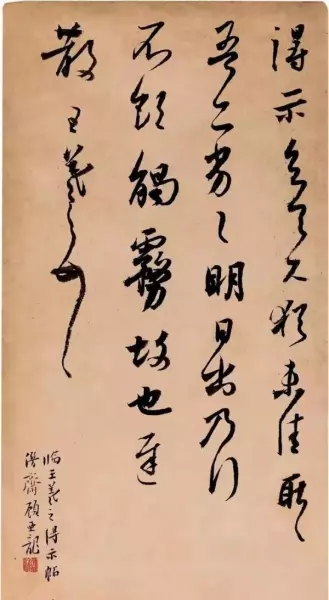 得示知足下猶未佳耿〻
吾亦劣〻明日出乃行
不欲觸霧故也遲
散王羲之頓首
臨王羲之得示帖
齋顧亞龍